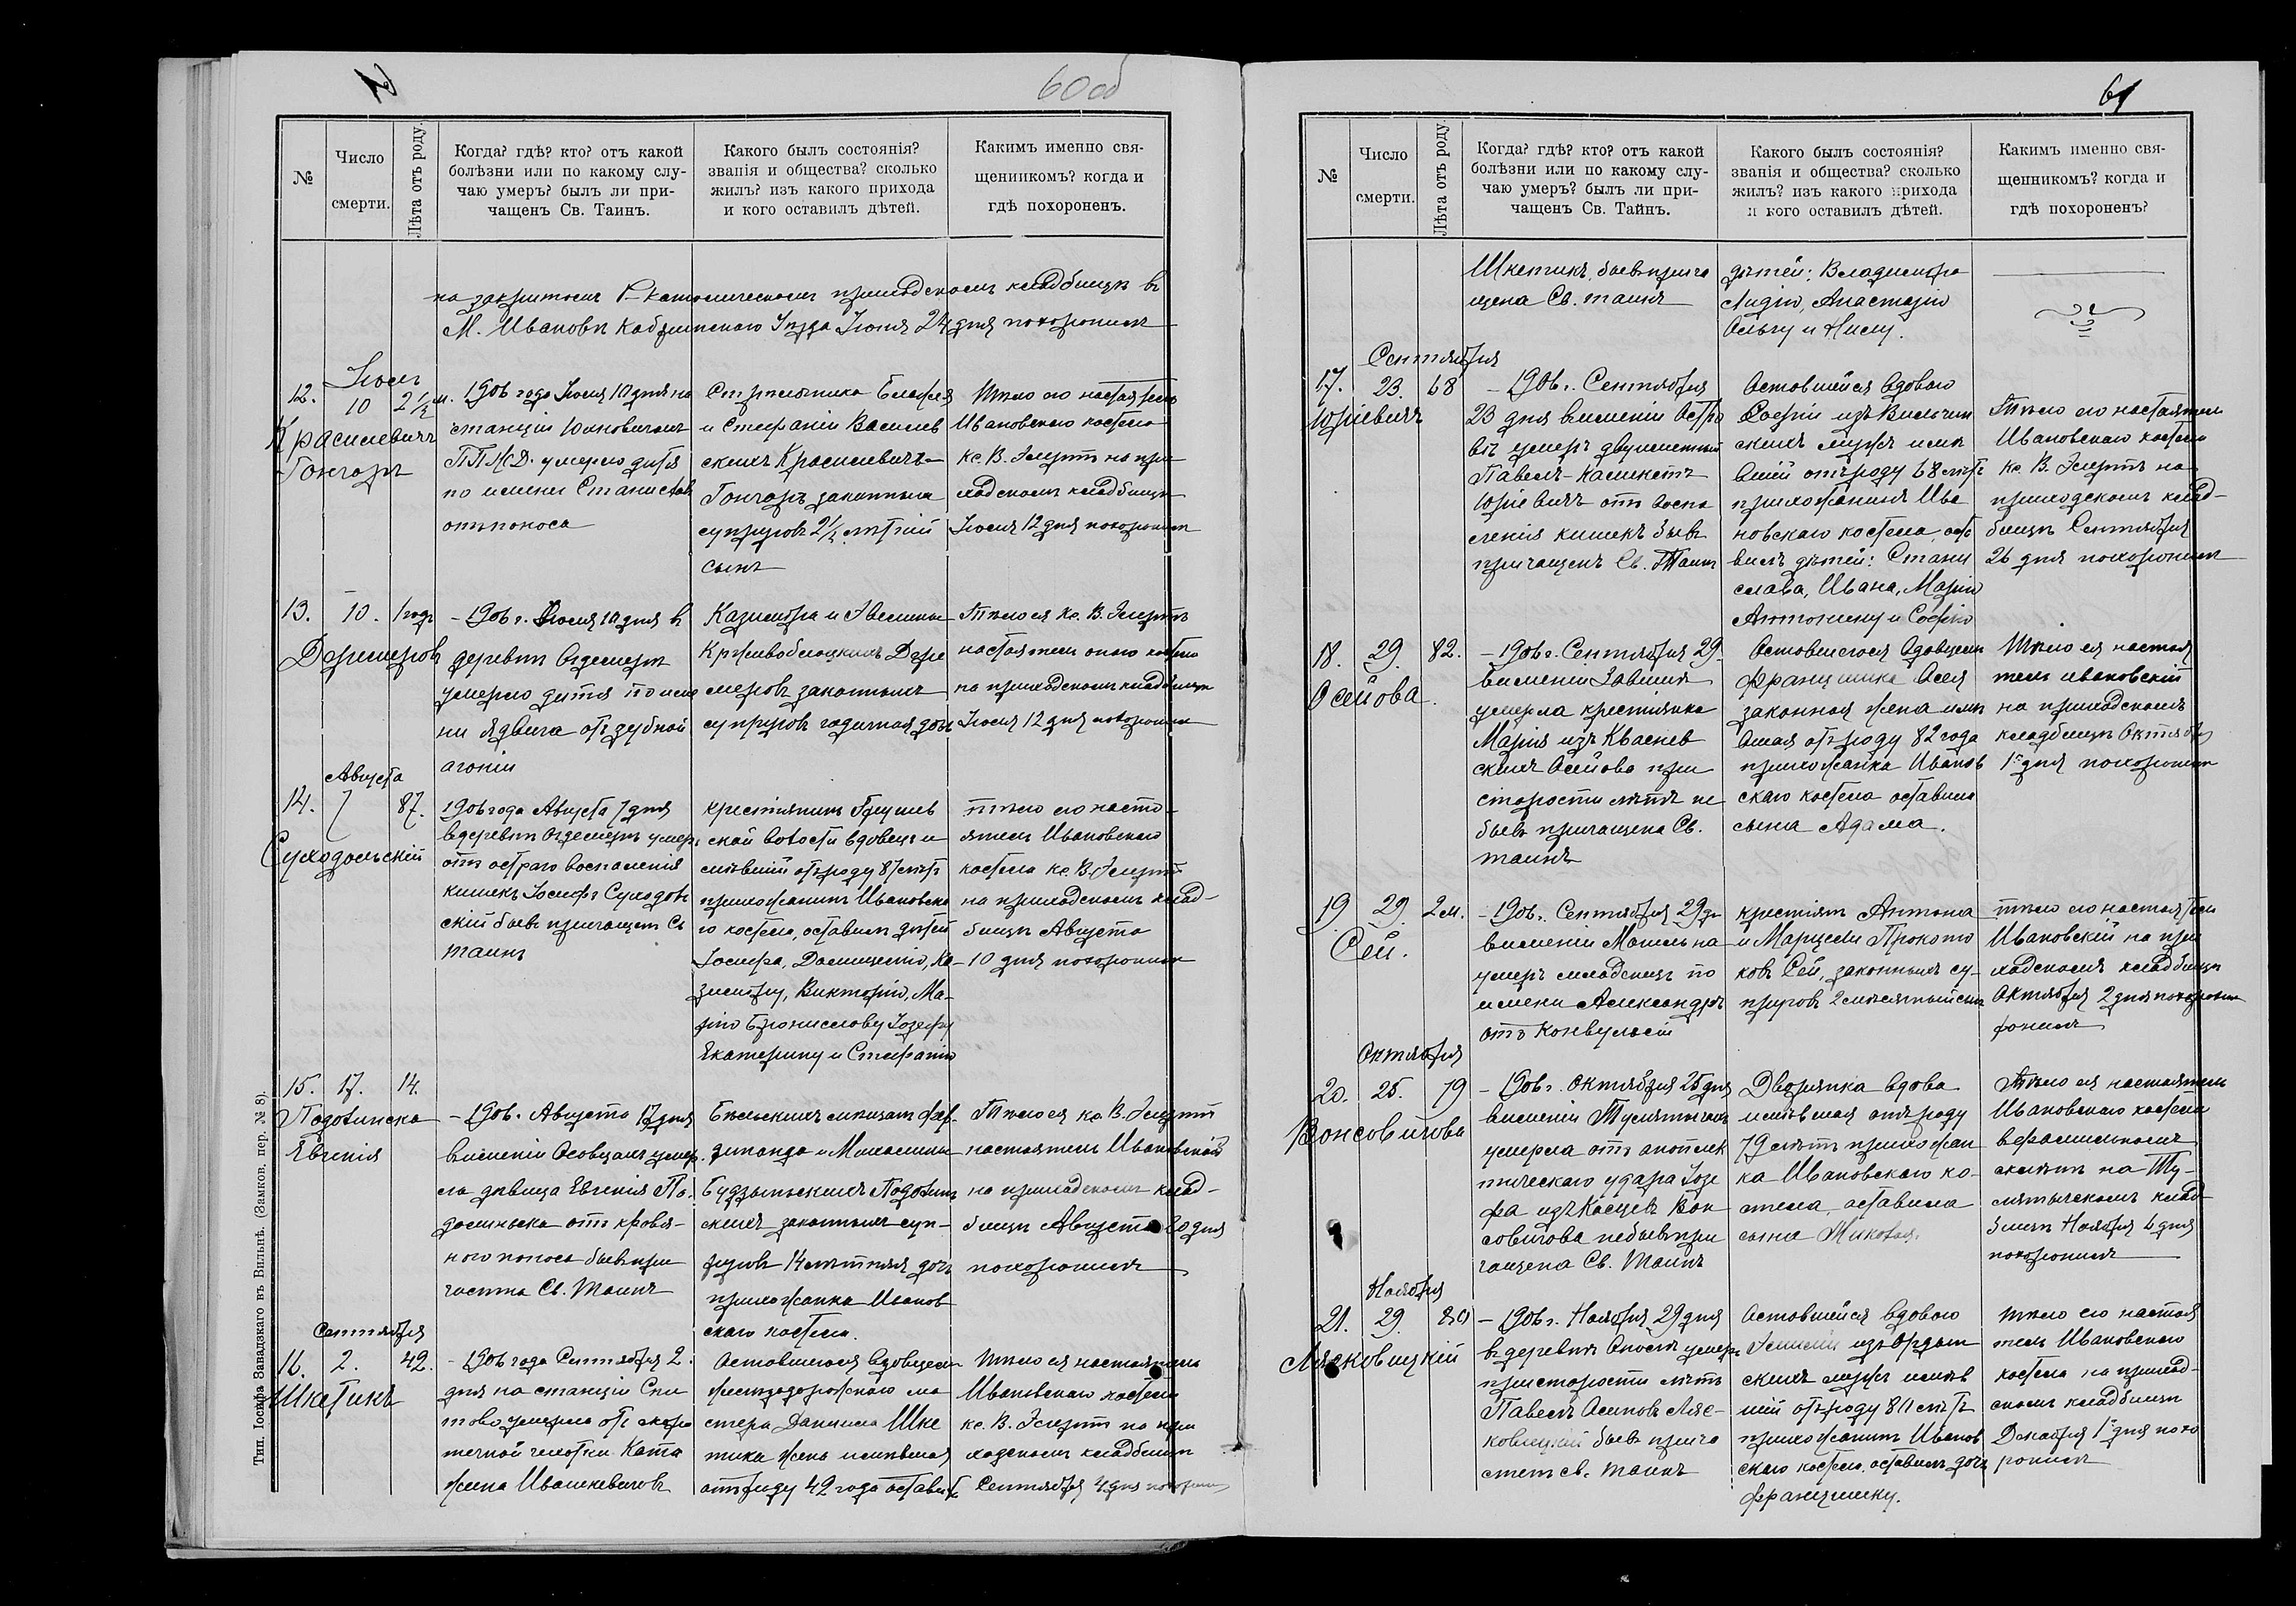 60 об
№
Число смерти.
Лѣта отъ роду.
Когда? гдѣ? кто? отъ какой
болѣзни или по какому слу-
чаю умеръ? былъ ли при-
чащенъ Св. Таинъ.
Какого былъ состоянія?
званія и общества? сколько
жилъ? изъ какого прихода
и кого оставилъ дѣтей.
Какимъ именно свя-
щенникомъ? когда и
гдѣ похороненъ.
на закрытомъ Р-Католическомъ приходскомъ кладбищѣ въ
М. Ивановѣ Кобринскаго Уѣзда Іюня 24 дня похороненъ
12.
10
2 1/2
Красилевичъ
Гончаръ
1906 года Іюля 10 дня на
станціи Юхновичахъ
умерло дитя
по имени Станиславъ
отъ поноса
и Стефаніи Василев
скихъ Красилевичъ
Гончаръ законныхъ
супруговъ 2 1/2 лѣтній
сынъ
Тѣло его настоятель
Ивановскаго костела
Кс. В. на при
ходскомъ кладбищѣ
Іюля 12 дня похоронилъ
13.
10.
1 годъ
1906 г. Іюля 10 дня въ
деревнѣ
умерло дитя по име
ни Ядвига отъ зубной
агоніи
Казимира и
законныхъ
супруговъ годичная дочь
Тѣло ея Кс. В.
настоятель
на приходскомъ кладбищѣ
Іюля 12 дня похоронилъ
Августа
14.
7
87.
Суходольскій
1906 года Августа 7 дня
въ деревнѣ умеръ
отъ остраго воспаленія
кишекъ Іосифъ Суходоль
скій бывъ причащенъ Св
Таинъ
крестьянинъ
ской волости вдовецъ и
мѣвшій отъ роду 87 лѣтъ
прихожанинъ Ивановска
го костела, оставилъ дѣтей
Іосифа, Домицелію, Ка
зимиру, Викторію, Ма-
рію Брониславу Іозефу
Екатерину и Стефанію
тѣло его насто-
ятель Ивановскаго
костела Кс. В.
на приходскомъ клад-
бищѣ Августа
10 дня похоронилъ
15.
17.
14.
Подолинска
Евгенія
1906 г. Августа 17 дня
въ имѣніи Осовцахъ умер
ла дѣвица Евгенія По
долинска отъ крова-
ваго поноса бывъ при
Св. Таинъ
Бѣльскихъ мѣщанъ Фер
динанда и
Подолин
скихъ законныхъ суп-
руговъ 14 лѣтняя дочь
прихожанка Иванов
скаго костела.
Тѣло ея Кс. В.
настоятель Ивановскій
на приходскомъ клад-
бищѣ Августа 20 дня
похоронилъ
Сентября
16.
2.
42.
Шкетикъ
1906 года Сентября 2
дня на станціи
умерла отъ скоро
течной чахотки Ката
жина Ивашкевичовъ
Оставшагося вдовцемъ
желѣздорожнаго ма
стера Даніила Шке
тика жена имѣвшая
отъ роду 42 года остави
Тѣло ея настоятель
Ивановскаго костела
Кс. В. на при
ходскомъ кладбищѣ
Сентября 4 дня похоронилъ
Тип. Іосифа Завадзкаго въ Вильнѣ. (Замков. пер. № 8).
61
№
Число смерти.
Лѣта отъ роду.
Когда? гдѣ? кто? отъ какой
болѣзни или по какому слу-
чаю умеръ? былъ ли при-
чащенъ Св. Тайнъ.
Какого былъ состоянія?
званія и общества? сколько
жилъ? изъ какого прихода
и кого оставилъ дѣтей.
Какимъ именно свя-
щенникомъ? когда и
гдѣ похороненъ?
Шкетикъ, бывъ прича
щена Св. таинъ
дѣтей: Владиміра
Лидію, Анастазію
Ольгу и Нину.
Сентября
17.
23.
68
Юріевичъ
1906 г. Сентября
23 дня въ имѣніи Остро
вѣ умеръ
Павелъ-Каликстъ
Юріевичъ отъ воспа
ленія кишекъ бывъ
причащенъ Св. Таинъ
Оставшейся вдовою
Софіи изъ
скихъ мужъ имѣ
вшій отъ роду 68 лѣтъ
прихожанинъ Ива
новскаго костела оста
вилъ дѣтей: Стани
слава, Ивана, Марію
Антонину и Софію
Тѣло его настоятель
Ивановскаго костела
Кс. В. на
приходскомъ клад-
бищѣ Сентября
26 дня похоронилъ
18.
29.
82.
Осейова.
1906 г. Сентября 29
въ имѣніи Завишъ
умерла крестьянка
Марія изъ Кваснев
скихъ Осейова при
старости лѣтъ не
бывъ причащена Св.
таинъ
Оставшагося вдовцемъ
Францишка Осея
законная жена имѣ
вшая отъ роду 82 года
прихожанка Иванов
скаго костела оставила
сына Адама.
Тѣло ея настоя
тель ивановскій
на приходскомъ
кладбищѣ Октября
1го дня похоронилъ
19.
29.
2 м.
Сей.
1906 г. Сентября 29 дн
въ имѣніи
умеръ младенецъ по
имени Александръ
отъ конвульсій
крестьянъ Антона
и Марцели Прокопо
ковъ Сей, законныхъ су-
пруговъ 2 мѣсячный сынъ
тѣло его настоятель
Ивановскій на при
ходскомъ кладбищѣ
Октября 2 дня
Октября
20.
25.
79
Вонсовичова
1906 г. Октября 25 дня
въ имѣніи
умерла отъ апоплек
тическаго удара Іозе
фа изъ Вон
совичова не бывъ при
чащена Св. Таинъ
Дворянка вдова
имѣвшая отъ роду
79 лѣтъ прихожан
ка Ивановскаго ко-
стела, оставила
сына
Тѣло ея настоятель
Ивановскаго костела
въ фамильномъ
склепѣ на
клад
бищѣ Ноября 4 дня
похоронилъ
Ноября
21.
29.
80
Лясковицкій
1906 г. Ноября 29 дня
въ деревнѣ умеръ
при старости лѣтъ
Павелъ Ляс-
ковицкій бывъ прича
св. таинъ
Оставшейся вдовою
изъ
скихъ мужъ имѣв
шій отъ роду 80 лѣтъ
прихожанинъ Иванов
скаго костела, оставилъ дочь
Францишку.
тѣло его настоя
тель Ивановскаго
костела на приход-
скомъ кладбищѣ
Декабря 1го дня похо
ронилъ